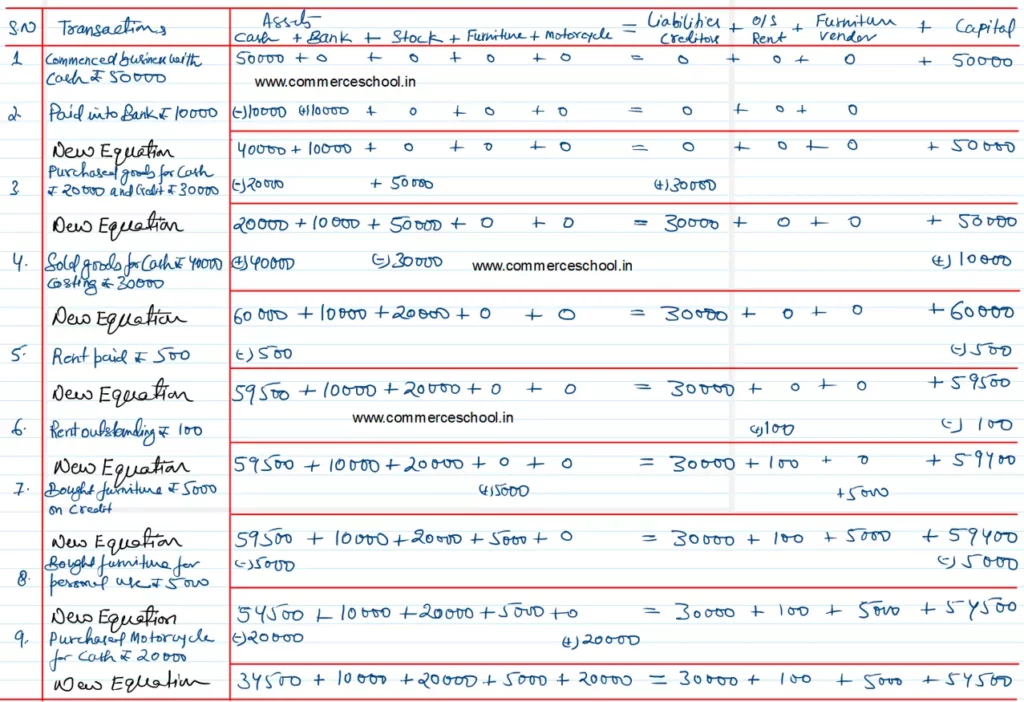 S.NO Transactions Assets = Liabilities + O/S + Furniture + Capital
Cash + Bank + Stock + Furniture + Motorcycle Creditors Rent vendor
1 Commenced business with 50000 + 0 + 0 + 0 + 0 = 0 + 0 + 0 + 50000
Cash ₹ 50000
www.commerceschool.in
2. Paid into Bank ₹ 10000 (-)10000 (+)10000 + 0 + 0 + 0 = 0 + 0 + 0
New Equation 40000 + 10000 + 0 + 0 + 0 = 0 + 0 + 0 + 50000
Purchased goods for Cash
3 ₹ 20000 and Credit ₹ 30000 (-)20000 + 50000 (+)30000
New Equation 20000 + 10000 + 50000 + 0 + 0 = 30000 + 0 + 0 + 50000
4. Sold goods for Cash ₹ 40000 (+)40000 (-)30000 www.commerceschool.in (+)10000
Costing ₹ 30000
New Equation 60000 + 10000 + 20000 + 0 + 0 = 30000 + 0 + 0 + 60000
5. Rent paid ₹ 500 (-)500 (-)500
New Equation 59500 + 10000 + 20000 + 0 + 0 = 30000 + 0 + 0 + 59500
www.commerceschool.in
6. Rent outstanding ₹ 100 (+)100 (-)100
New Equation 59500 + 10000 + 20000 + 0 + 0 = 30000 + 100 + 0 + 59400
7. Bought furniture ₹ 5000 (+)5000 +5000
on Credit
New Equation 59500 + 10000 + 20000 + 5000 + 0 = 30000 + 100 + 5000 + 59400
Bought furniture for (-)5000 (-)5000
8. personal use ₹ 5000
New Equation 54500 + 10000 + 20000 + 5000 + 0 = 30000 + 100 + 5000 + 54500
9. Purchased Motorcycle (-)20000 (+)20000
for Cash ₹ 20000
New Equation 34500 + 10000 + 20000 + 5000 + 20000 = 30000 + 100 + 5000 + 54500